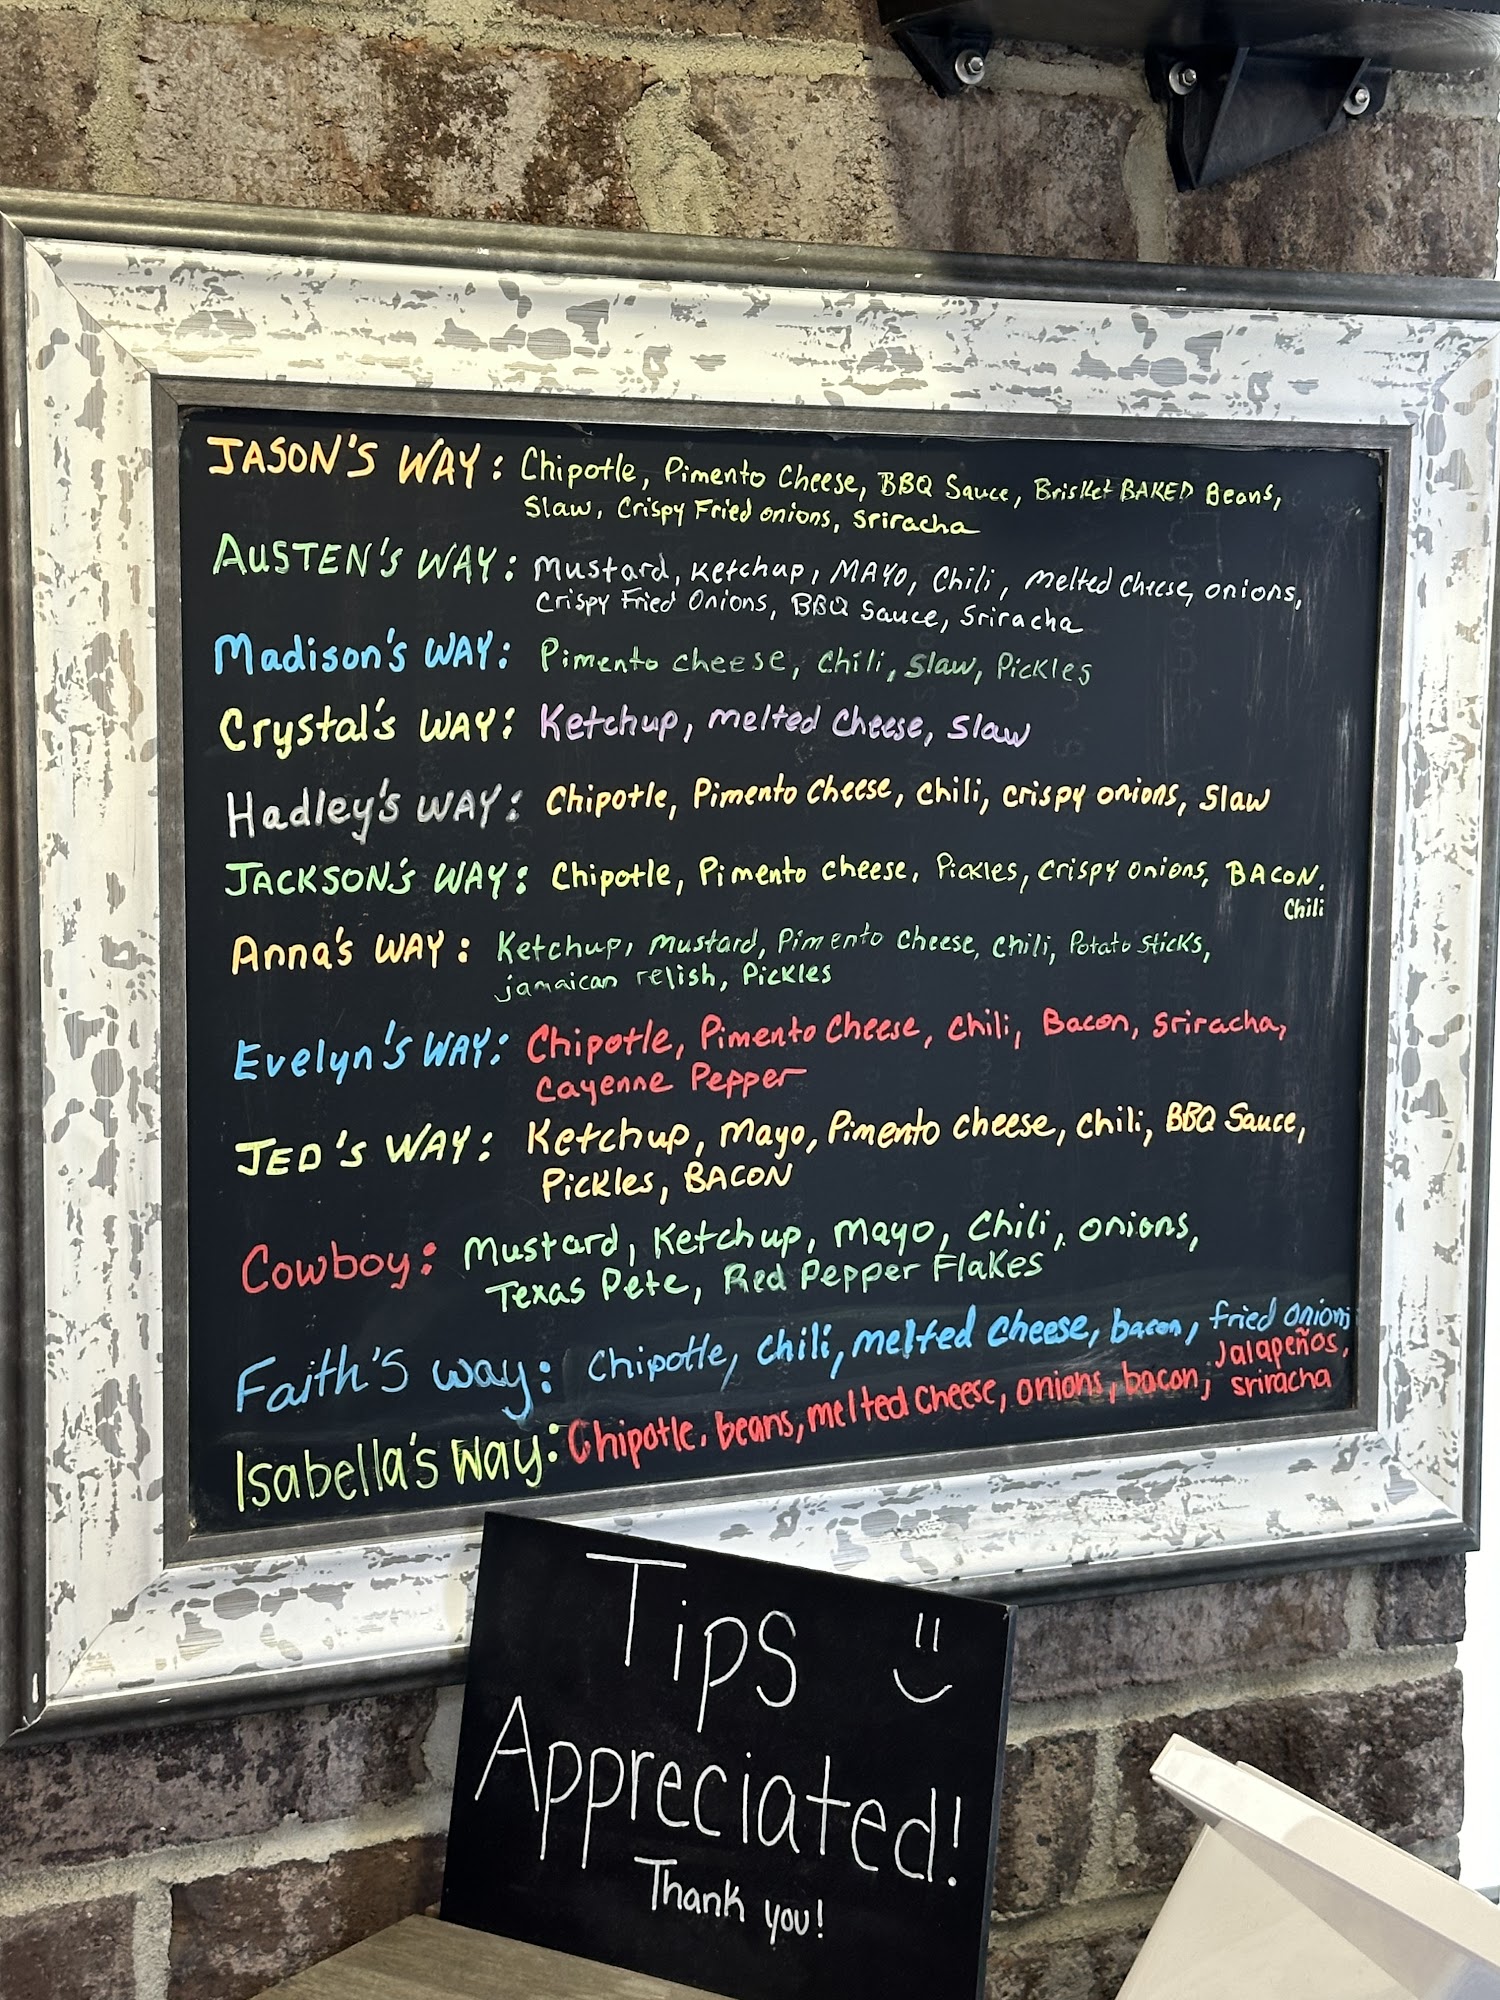 JASON'S WAY: Chipotle, Pimento Cheese, BBQ Sauce, Brisket BAKED Beans,
Slaw, Crispy Fried onions, Sriracha
AUSTEN'S WAY: Mustard, Ketchup, MAYO, Chili, melted Cheese, onions,
Crispy Fried Onions, BBQ Sauce, Sriracha
Madison's WAY: Pimento cheese, Chili, Slaw, Pickles
Crystal's WAY: Ketchup, melted Cheese, Slaw
Hadley's WAY: Chipotle, Pimento Cheese, Chili, crispy onions, Slaw
JACKSON'S WAY: Chipotle, Pimento cheese, Pickles, crispy onions, BACON,
Chili
Anna's WAY: Ketchup, mustard, Pimento cheese, chili, Potato sticks,
jamaican relish, Pickles
Evelyn's WAY: Chipotle, Pimento Cheese, Chili, Bacon, Sriracha,
Cayenne Pepper
JED'S WAY: Ketchup, Mayo, Pimento cheese, chili, BBQ Sauce,
Pickles, BACON
Cowboy: Mustard, Ketchup, Mayo, Chili, onions,
Texas Pete, Red Pepper Flakes
Faith's way: Chipotle, Chili, melted cheese, bacon, fried onions
Isabella's Way: Chipotle, beans, melted cheese, onions, bacon, Jalapeños,
sriracha
Tips
Appreciated!
Thank you!